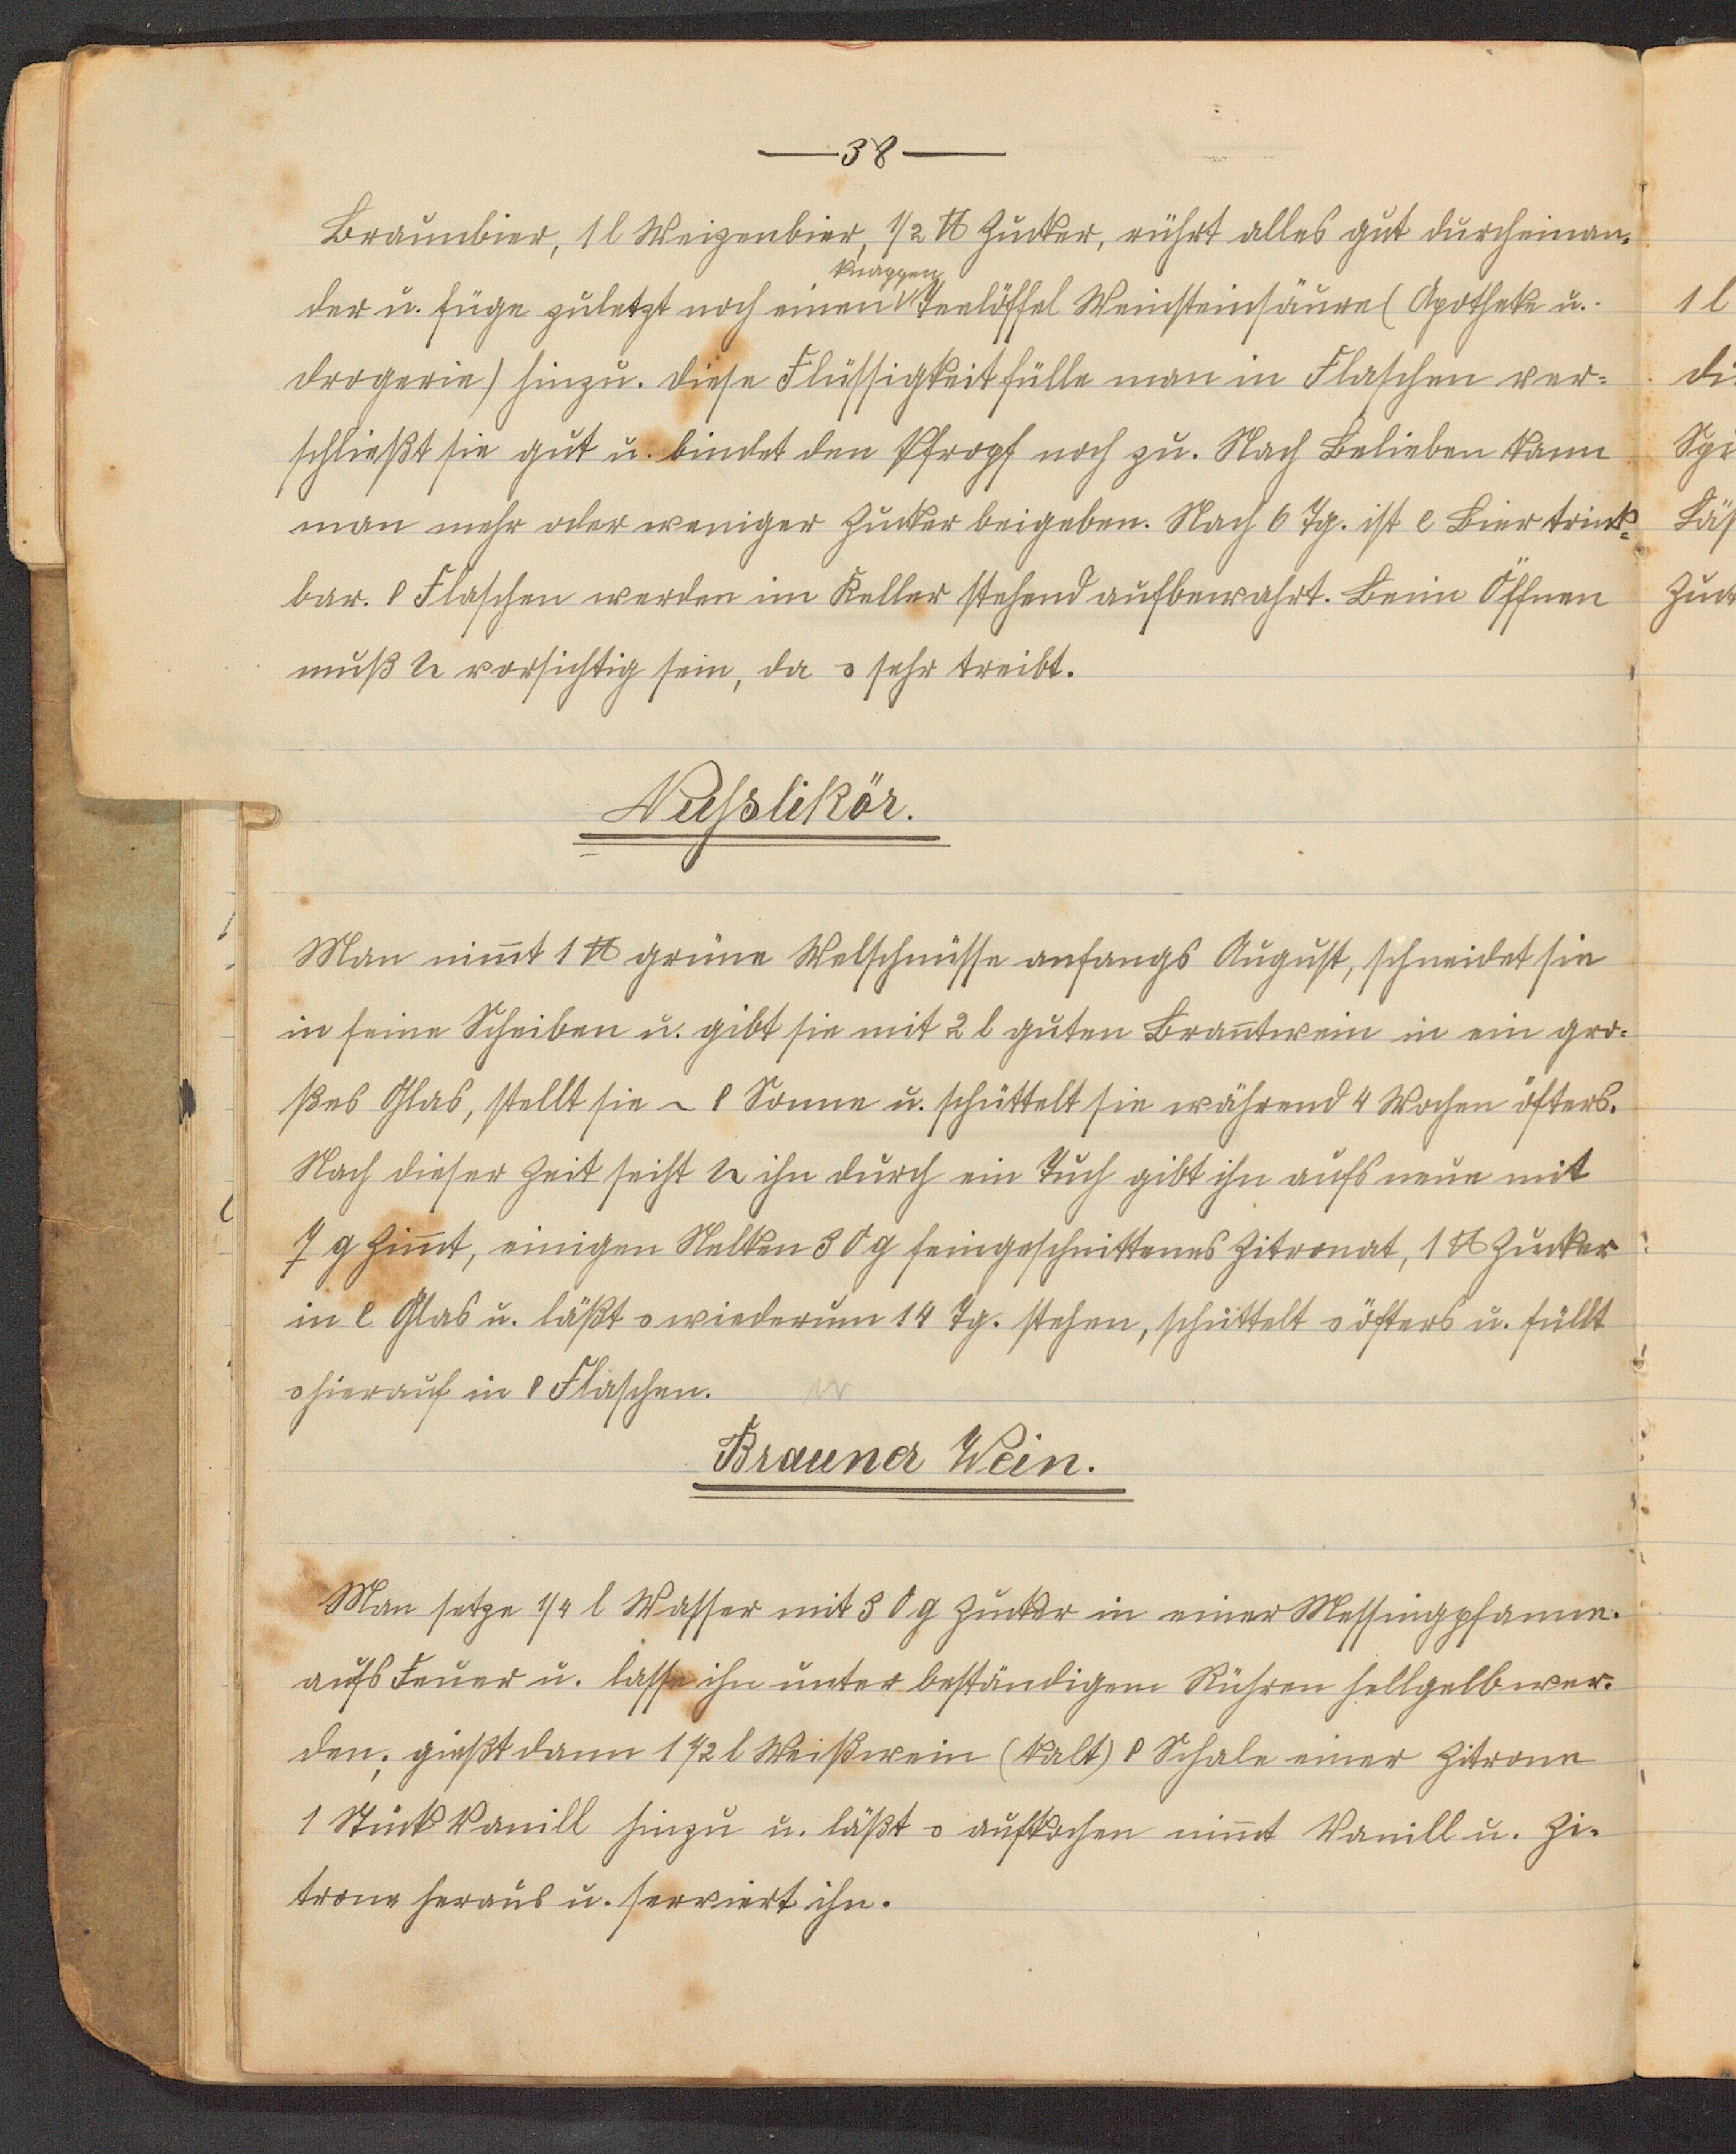 — 38 —
Braunbier, 1 l Weizenbier, 1/2 ℔ Zucker, rührt alles gut durcheinan-
knappen
der u. füge zuletzt noch einen Teelöffel Weinsteinsäure (Apotheke u.
Drogerie) hinzu. Diese Flüssigkeit fülle man in Flaschen ver=
schließt sie gut u. bindet den Pfropf noch zu. Nach Belieben kann
man mehr oder weniger Zucker beigeben. Nach 6 Tg. ist Bier trink=
bar. Flaschen werden im Keller stehend aufbewahrt. Beim Öffnen
muß vorsichtig sein, da sehr treibt.
Nußlikör.
Man nim̄t 1 ℔ grüne Welschnüsse anfangs August, schneidet sie
in feine Scheiben u. gibt sie mit 2 l guten Bran̄twein in ein gro=
ßes Glas, stellt sie Sonne u. schüttelt sie während 4 Wochen öfters.
Nach dieser Zeit seiht ihn durch ein Tuch gibt ihn aufs neue mit
7 g Zim̄t, einigen Nelken 30 g feingeschnittenes Zitronat, 1 ℔ Zucker
in Glas u. läßt wiederum 14 Tg. stehen, schüttelt öfters u. füllt
hierauf in Flaschen.
Brauner Wein.
Man setze 1/4 l Wasser mit 30 g Zucker in einer Messingpfanne
aufs Feuer u. lasse ihn unter beständigem Rühren hellgelb wer-
den; gießt dann 1 1/2 l Weißwein (kalt) Schale einer Zitrone
1 Stück Vanill hinzu u. läßt aufkochen nim̄t Vanill u. Zi-
trone heraus u. serviert ihn.
1 l